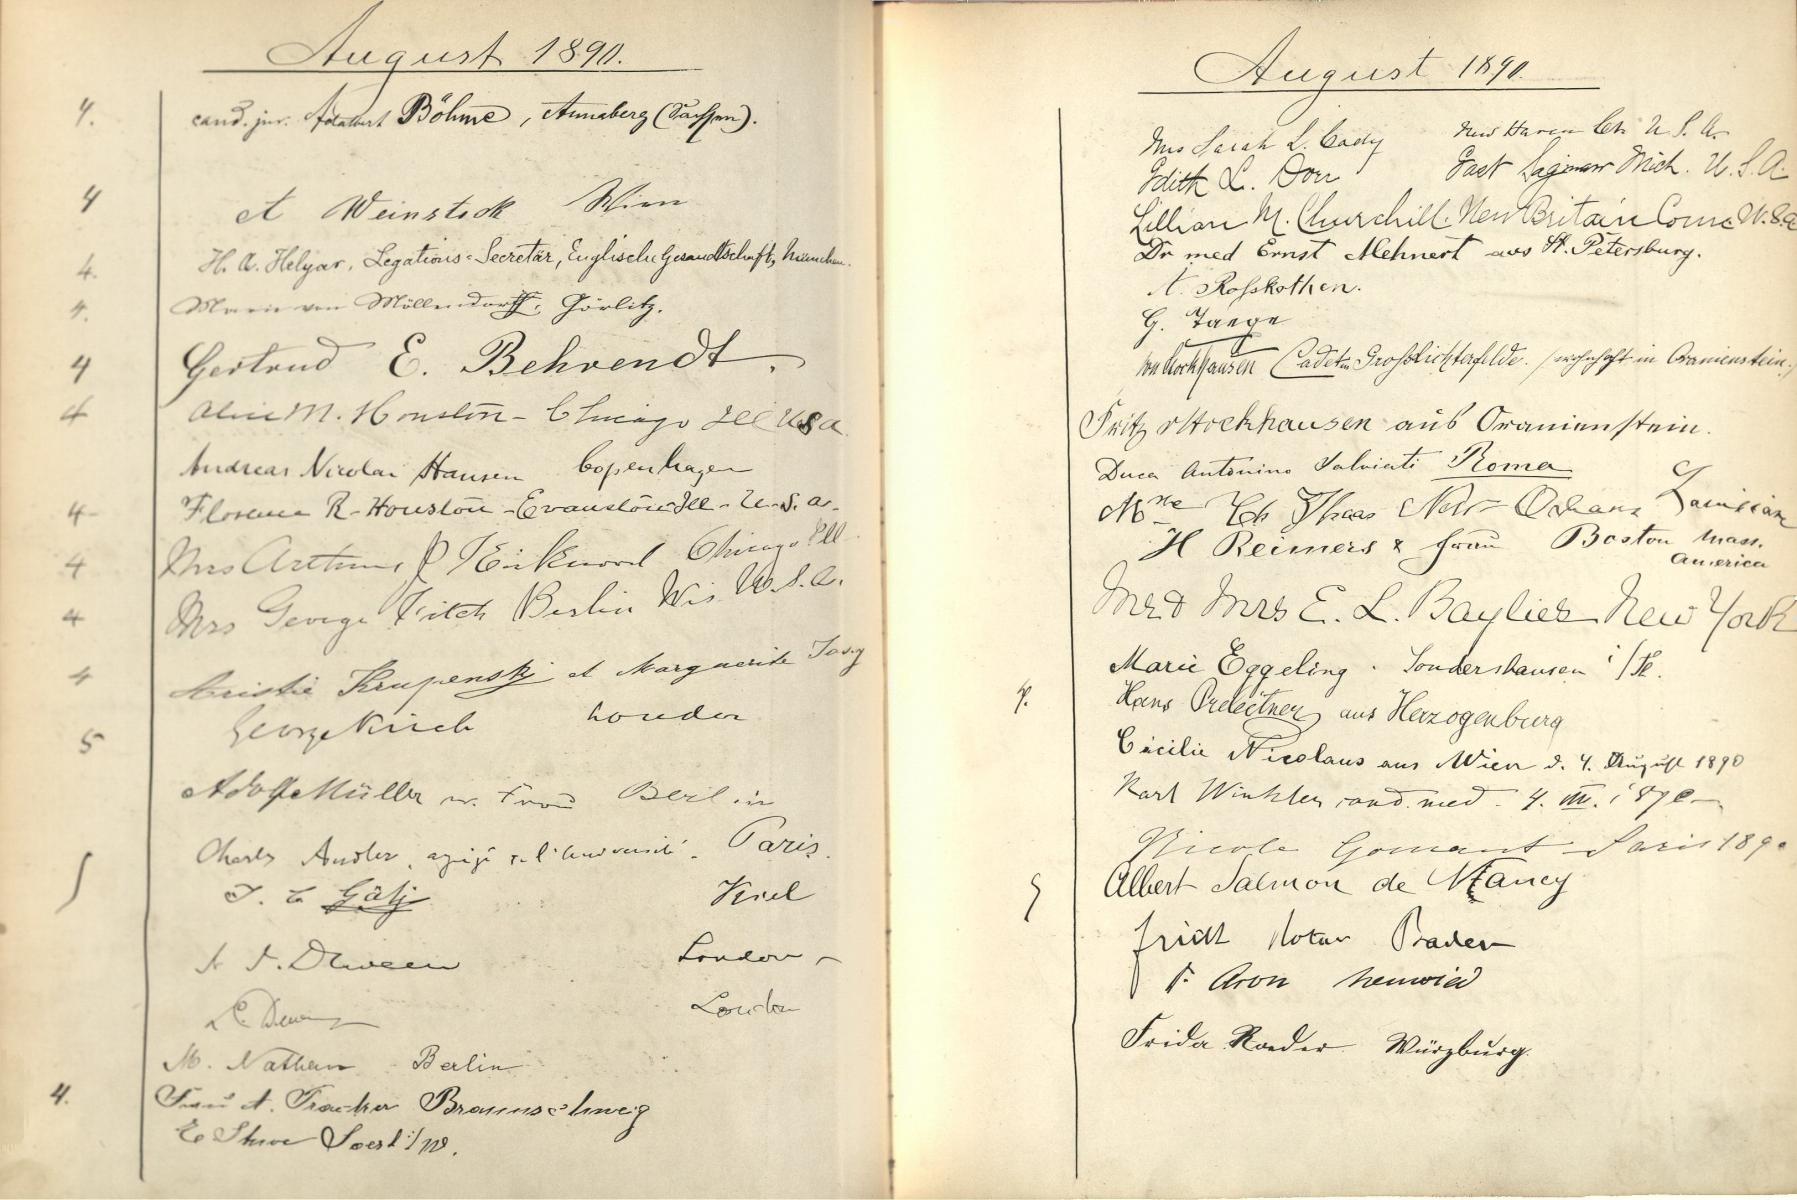 August 1890.
4. cand. jur. Adalbert Böhme, Annaberg (Sachsen).
4 A Weinstock Wien
4. H. A. Helyar, Legations-Secretär, Englische Gesandtschaft, München.
4. Marie von Möllendorff, Görlitz.
4 Gertrud E. Behrendt.
4 Alice M. Houston - Chicago Ill U S A.
Andreas Nicolai Hansen Copenhagen
4 Florence R. Houston - Evanston Ill - U. S. A.
4 Mrs Arthur P Kirkwood Chicago Ill.
4 Mrs George Fitch Berlin Wis. U. S. A.
4 Krupensky et Marguerite
5 George Kirch London
Adolf Müller u. Frau Berlin
Charles Andler, agrégé de l'université. Paris.
5 Götz Kiel
London
London
M. Nathan Berlin
4. Frau A. Braunschweig
E Soest i/W.
August 1890
Mrs Sarah L. Cady New Haven Ct. U. S. A.
Edith L. Dorr East Saginaw Mich. U. S. A.
Lillian M. Churchill. New Britain Conn. U. S. A
Dr med Ernst Mehnert aus St. Petersburg.
A. Roßkothen.
G. Taege
von Hockhausen Cadet in Großlichterfelde. (wohnhaft in Oranienstein.)
Fritz v Hockhausen aus Oranienstein.
Duca Antonino Salviati Roma
Mme New-Orleans
H Reimers & Frau Boston Mass. America
Mr & Mrs E. L. Baylies New York
Marie Eggeling. Sondershausen i/Th.
4. Hans aus Herzogenburg
Cäcilie Nicolaus aus Wien d. 4. August 1890
Karl Winkler cand. med. 4. VIII. 1890
Nicole Paris 1890
5 Albert Salmon de Nancy
Notar Baden
F. Aron Neuwied
Frida Roeder Würzburg.